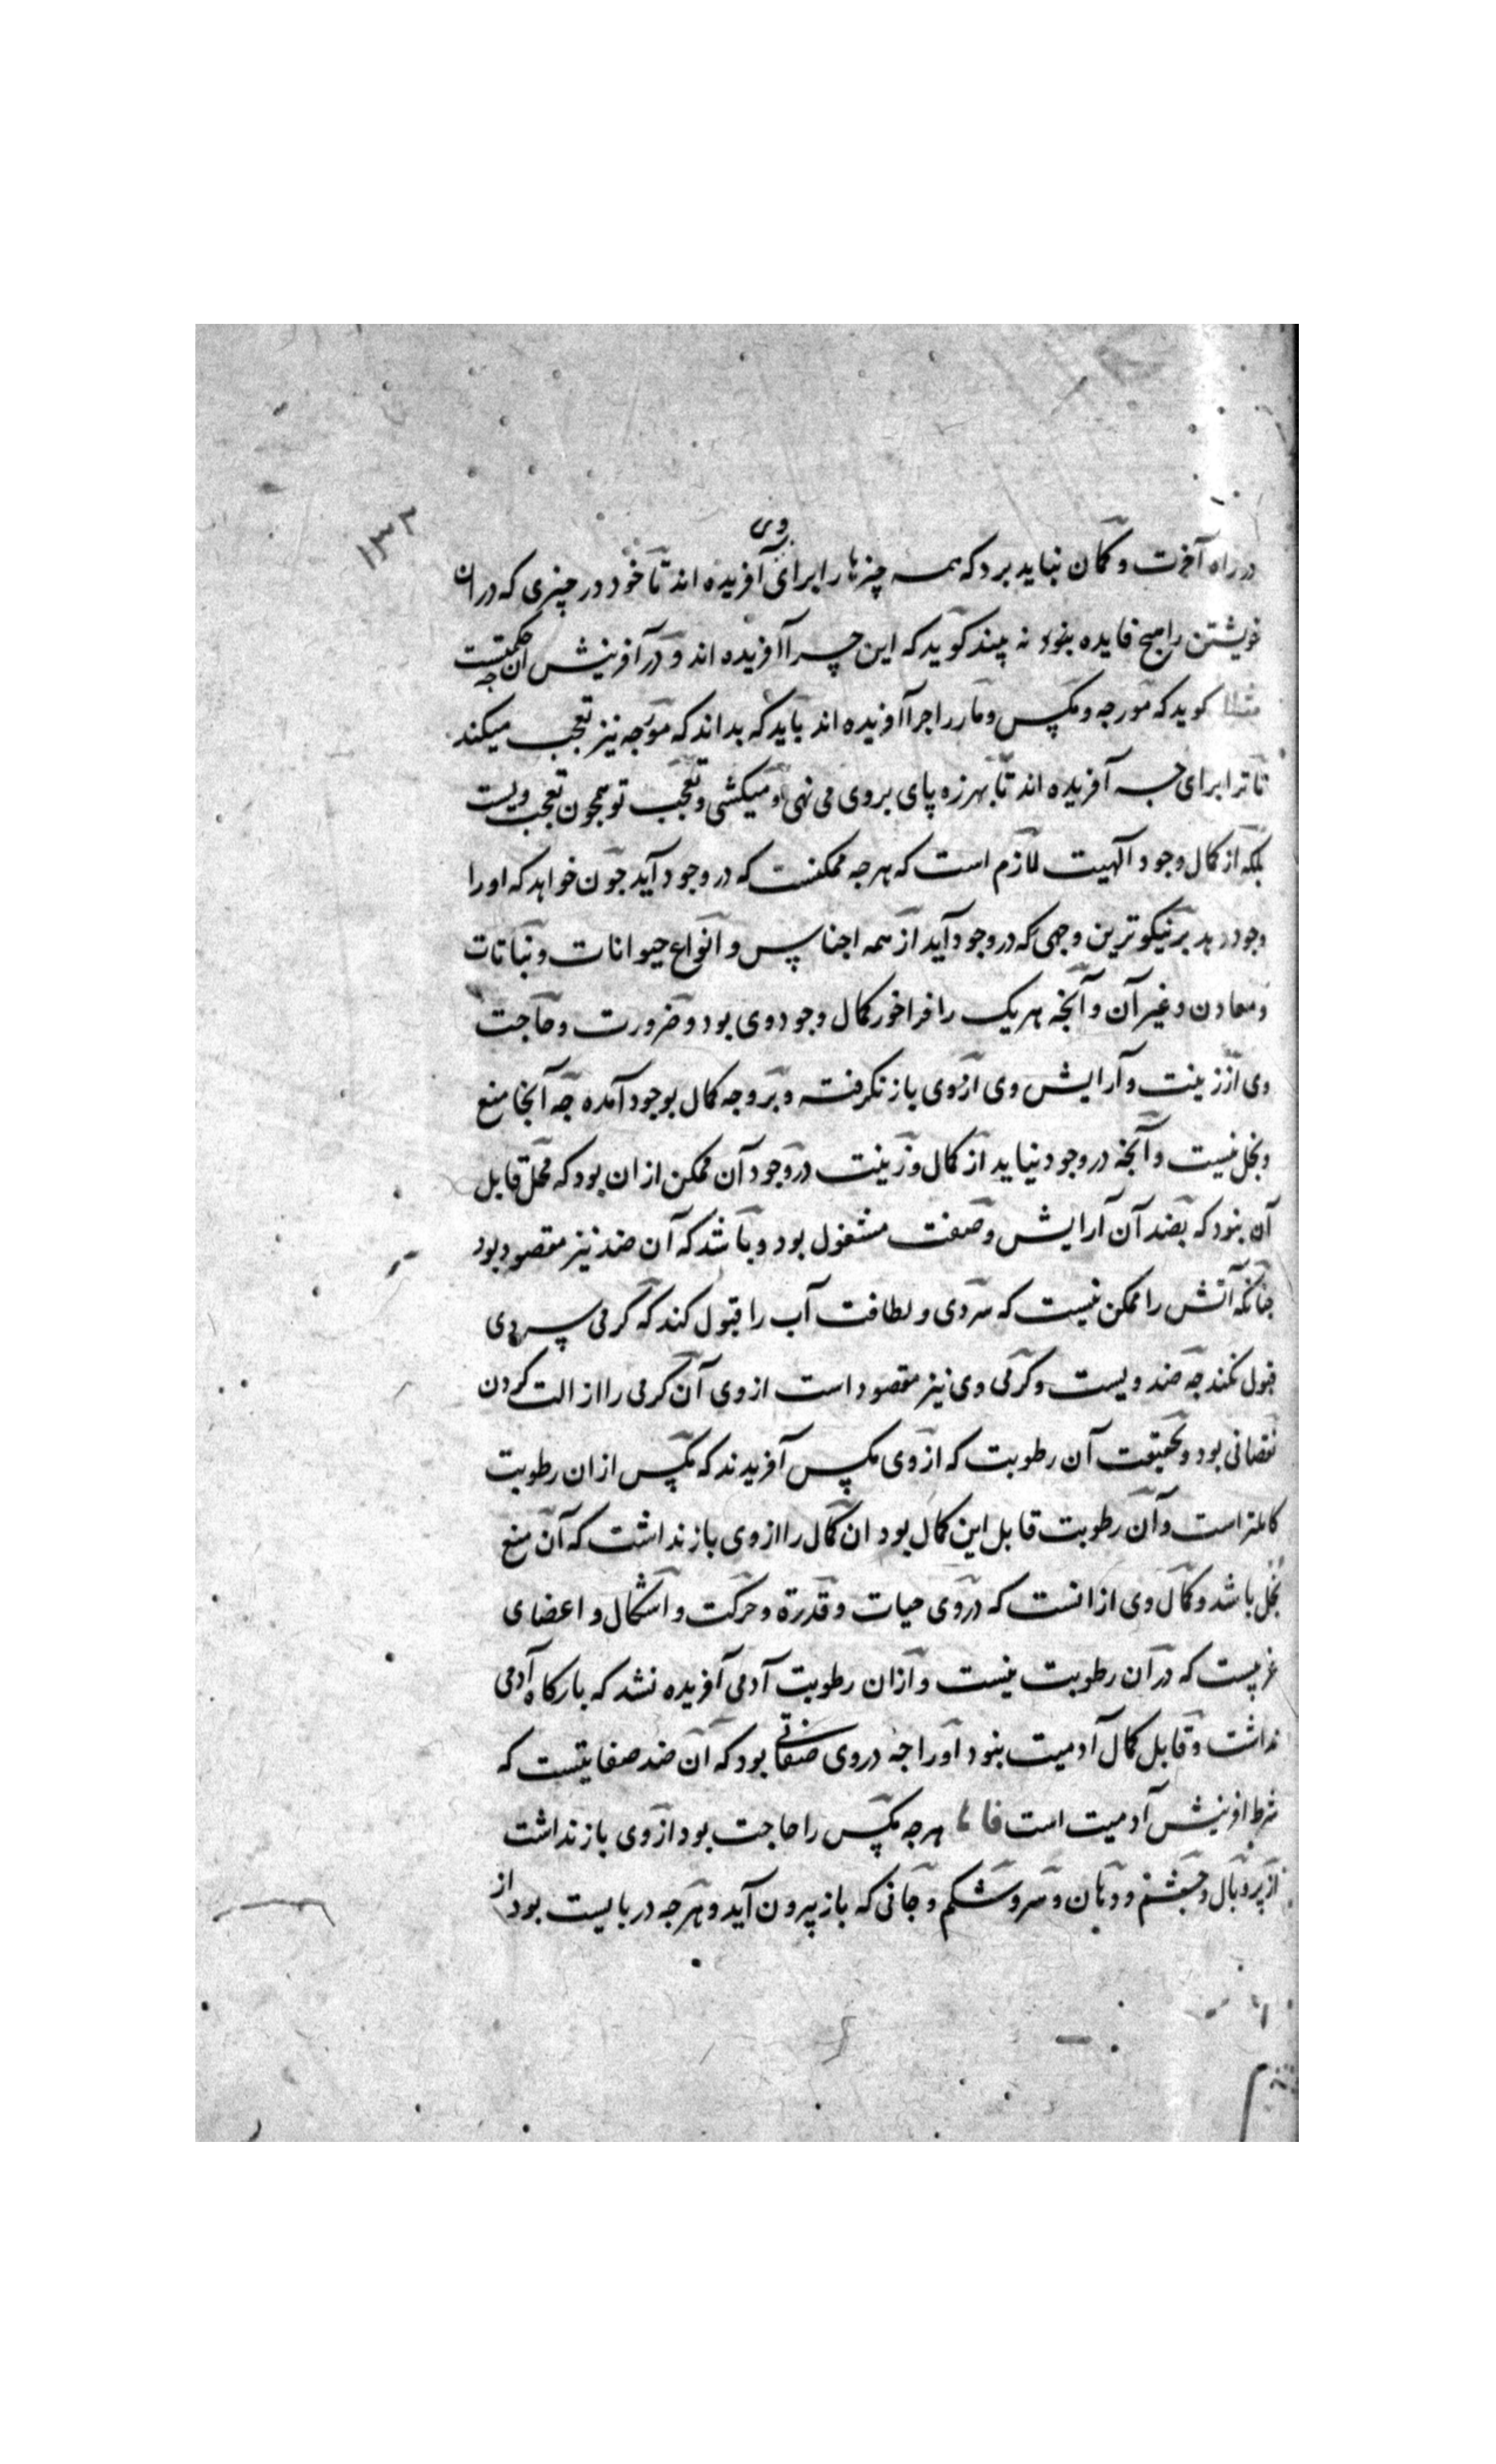 ۱۳۲
وی
در راه آخرت و کمان نباید برد که همه چیزها را برای آفریده اند تا خود در چیزی که دران
خویشتن را هیچ فایده بنود نه بیند کوید که این چرا آفریده اند و در آفرینش آن چه حکمتست
مثلا کوید که مورجه و مکس و مار را جرا آفریده اند باید که بداند که مورجه نیز تعجب میکند
تا ترا برای چه آفریده اند تا بهرزه پای بروی می نهی و میکشی و تعجب تو همجون تعجب ویست
بلکه از کمال وجود آلهیت لازم است که هرجه ممکنست که در وجود آید جون خواهد که او را
وجود دهد بر نیکوترین وجهی که در وجود آید از همه اجناس و انواع حیوانات و نباتات
و معادن و غیر آن و آنجه هر یک را فراخور کمال وجود وی بود و ضرورت و حاجت
وی از زینت و آرایش وی از وی باز نکرفت و بر وجه کمال بوجود آمده جه آنجا منع
و بخل نیست و آنجه در وجود نیاید از کمال و زینت در وجود آن ممکن ازان بود که محل قابل
آن بنود که بضد آن آرایش و صفت مشغول بود و باشد که آن ضد نیز مقصود بود
جنانکه آتش را ممکن نیست که سردی و لطافت آب را قبول کند که کرمی سردی
قبول نکند جه ضد ویست و کرمی وی نیز مقصود است از وی آن کرمی را ازالت کردن
نقصانی بود و بحقیقت آن رطوبت که از وی مکس آفریدند که مکس ازان رطوبت
کاملتر است و آن رطوبت قابل این کمال بود ان کمال را از وی باز نداشت که آن منع
بخل باشد و کمال وی ازانست که در وی حیات و قدرة و حرکت و اشکال و اعضای
غریبست که در آن رطوبت نیست و ازان رطوبت آدمی آفریده نشد که بارکاه آدمی
نداشت و قابل کمال آدمیت بنود او را جه در وی صفاتی بود که آن ضد صفاتیست که
شرط افرینش آدمیت است هرجه مکس را حاجت بود از وی باز نداشت
از پر و بال و جشم و دهان و سر و شکم و جائی که باز بیرون آید و هرجه دربایست بود از